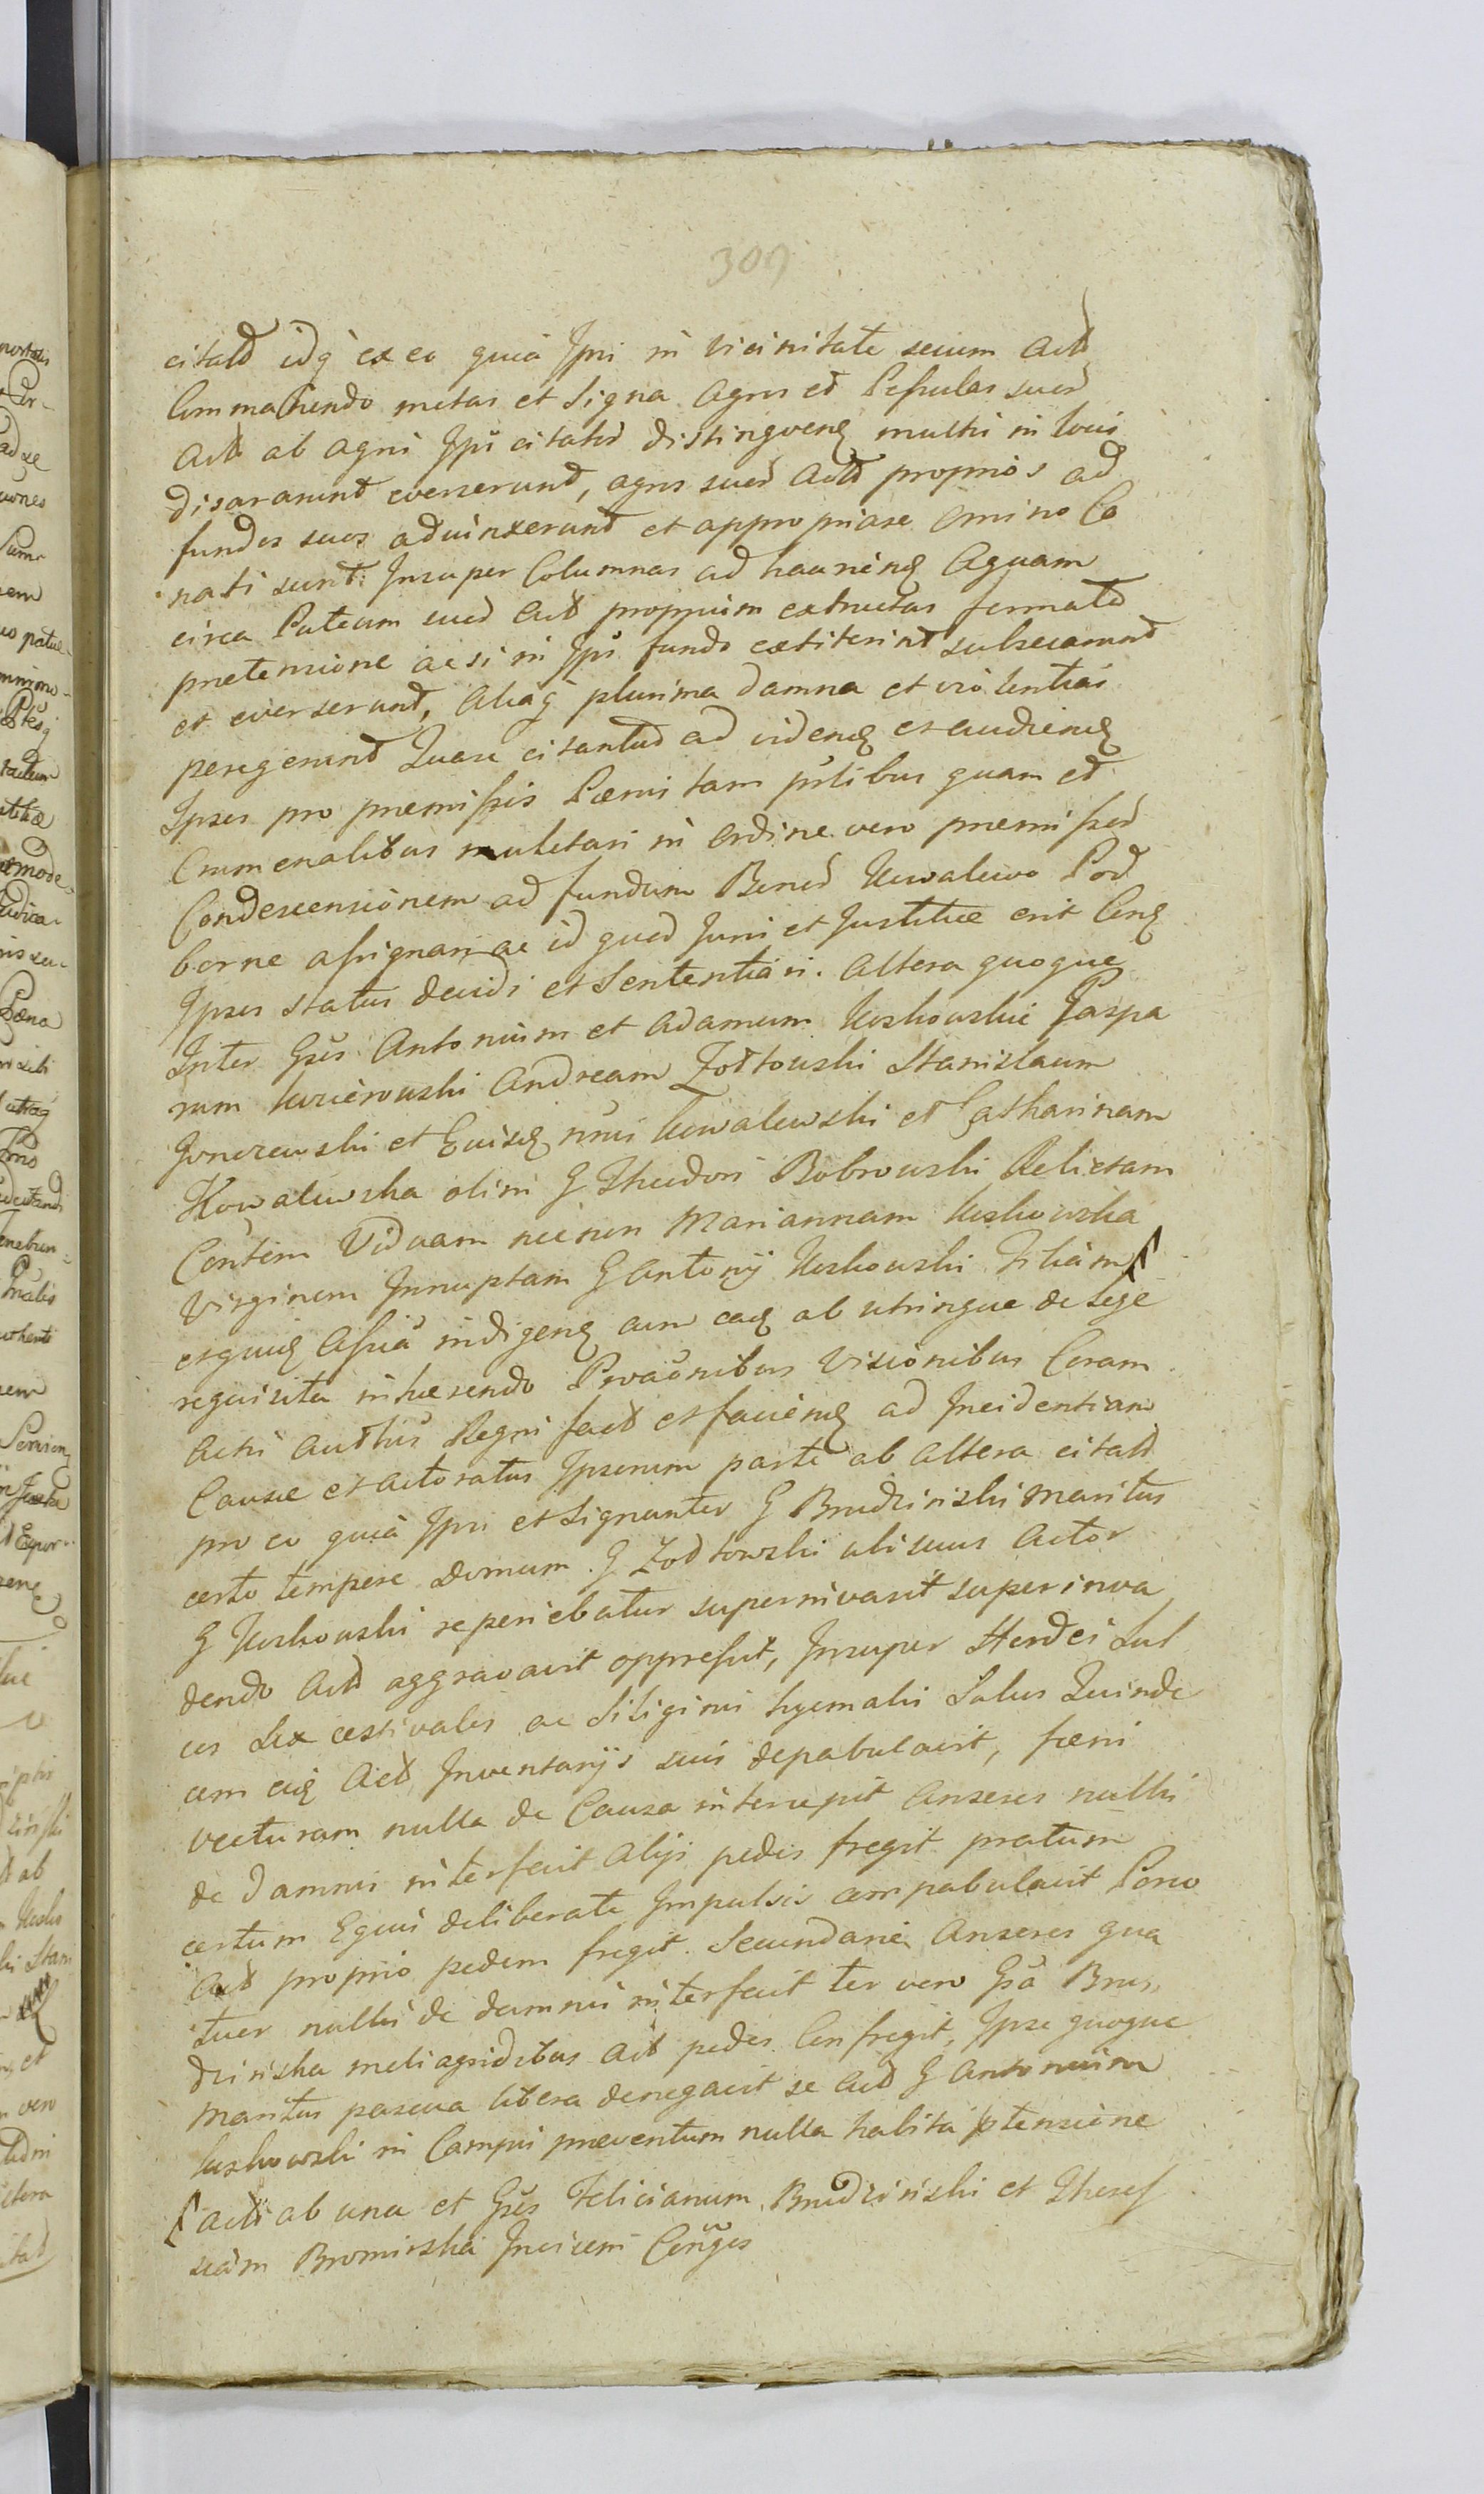 307
citatd idq ex eo quia Ipsi in vicinitate secum Actt
Commanendo metas et Signa Agros et Pessulas suos
Actt ab agris Ipsi citatis distingven multis in locis
disaranunt everserunt, agros suos Actt proprios ad
fundos suos adiunxerunt et appropriare omnino Co
nati sunt. Insuper Columnas ad haurien Aquam
circa Puteum suum Actt proprium extructas formata
pretensione ac si in Ipsi fundo extiterint subsecarunt
et everserunt, Aliaq plurima damna et violentias
peregerunt Quare citantur ad viden et audien
Ipsos pro premissis Pœnis tam pntibus quam et
Crimenalibus mulctari in ordine vero premissor
Condescensionem ad fundum Bonor Kowalewo Pod
borne assignari ac id quod Juris et Justitiæ erit Cen
Ipsos status decidi et Sententiari. Altera quoque
Inter Gsos Antonium et Adamum Koskowskie Gaspa
rum Andream Żołtowski Stanislaum
Gonczewski et Kowalewski et Catharinam
Kowalewska olim G Theodori Bobrowski Relictam
Contem Viduam necnon Mariannam Koskowska
Virginem Innuptam G Antonij Koskowski Filiam
Assia indigen cum ea ab utrinque de lege
requisita inhærendo Visionibus Coram
Actis Regni fact et facien ad Incidentiam
Causæ et actoratus Ipsorum parte ab altera citatt
pro eo quia Ipsi et Signanter G Brudzinski Maritus
certo tempore domum G Żołtowski ubi suus Actor
G Koskowski reperiebatur supernivasit superinva
dendo Actt aggravavit oppressit, Insuper Hordei Sul
cos Sex æstivalis ac Siliginis hyemalis Sulcos Quinde
cim Actt Inventarijs suis depabulavit, fœni
vecturam nulla de Causa intercepit Anseres nullis
de damnis interfecit Alijs pedes fregit pratum
certum Equis deliberate Impulsis compabulavit Porco
Actt proprio pedem fregit. Secundarie Anseres qua
tuor nullis de damnis interfecit ter vero Gsa Bru
dzinska meliagridibus Actt pedes Confregit, Ipse quoque
Maritus pascua libera denegavit se Actt G Antonium
Koskowski in Campis preventum nulla habita ptensione
Actt ab una et Gsos Felicianum Brudzinski et Theres
siam Bromirska Invicem Conges